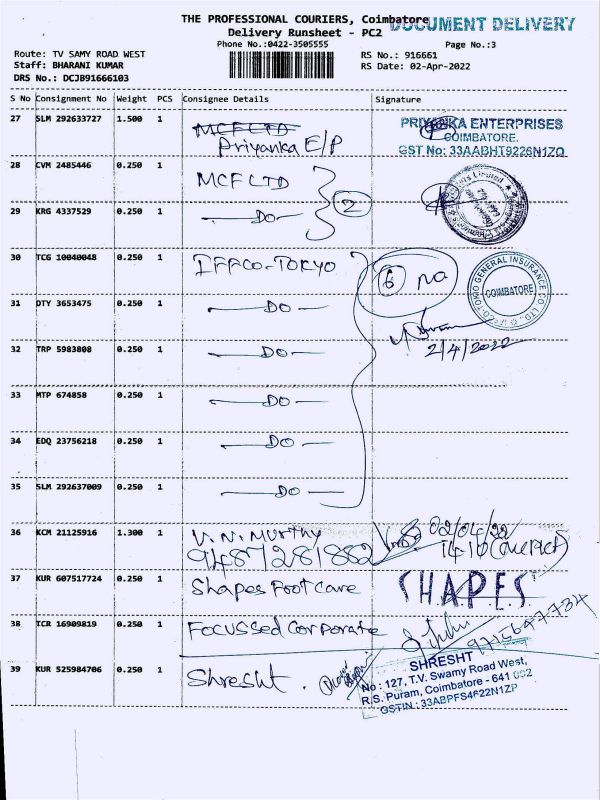 THE PROFESSIONAL COURIERS, Coimbatore
DOCUMENT DELIVERY
Delivery Runsheet - PC2
Phone No.:0422-3505555
Page No.:3
Route: TV SAMY ROAD WEST
RS No.: 916661
Staff: BHARANI KUMAR
RS Date: 02-Apr-2022
DRS No.: DCJB91666103
S No Consignment No Weight PCS Consignee Details Signature
27 SLM 292633727 1.500 1 MCF LTD
Priyanka E/P
PRIYANKA ENTERPRISES
COIMBATORE.
GST No: 33AABHT9226N1ZO
28 CVM 2485446 0.250 1 MCF LTD
2
29 KRG 4337529 0.250 1 DO
30 TCG 10040048 0.250 1 IFFCO-TOKYO
6 no
COIMBATORE
31 DTY 3653475 0.250 1 DO
32 TRP 5983808 0.250 1 DO
2/4/2022
33 MTP 674858 0.250 1 DO
34 EDQ 23756218 0.250 1 DO
35 SLM 292637009 0.250 1 DO
36 KCM 21125916 1.300 1 V.N. Murthy
9487281882
02/04/22
37 KUR 607517724 0.250 1 Shapes Foot Care
SHAPES
38 TCR 16909819 0.250 1 Focussed Corporate
39 KUR 525984706 0.250 1 Shresht.
SHRESHT
No : 127, T.V. Swamy Road West,
R.S. Puram, Coimbatore - 641 002
GSTIN : 33ABPFS4622N1ZP